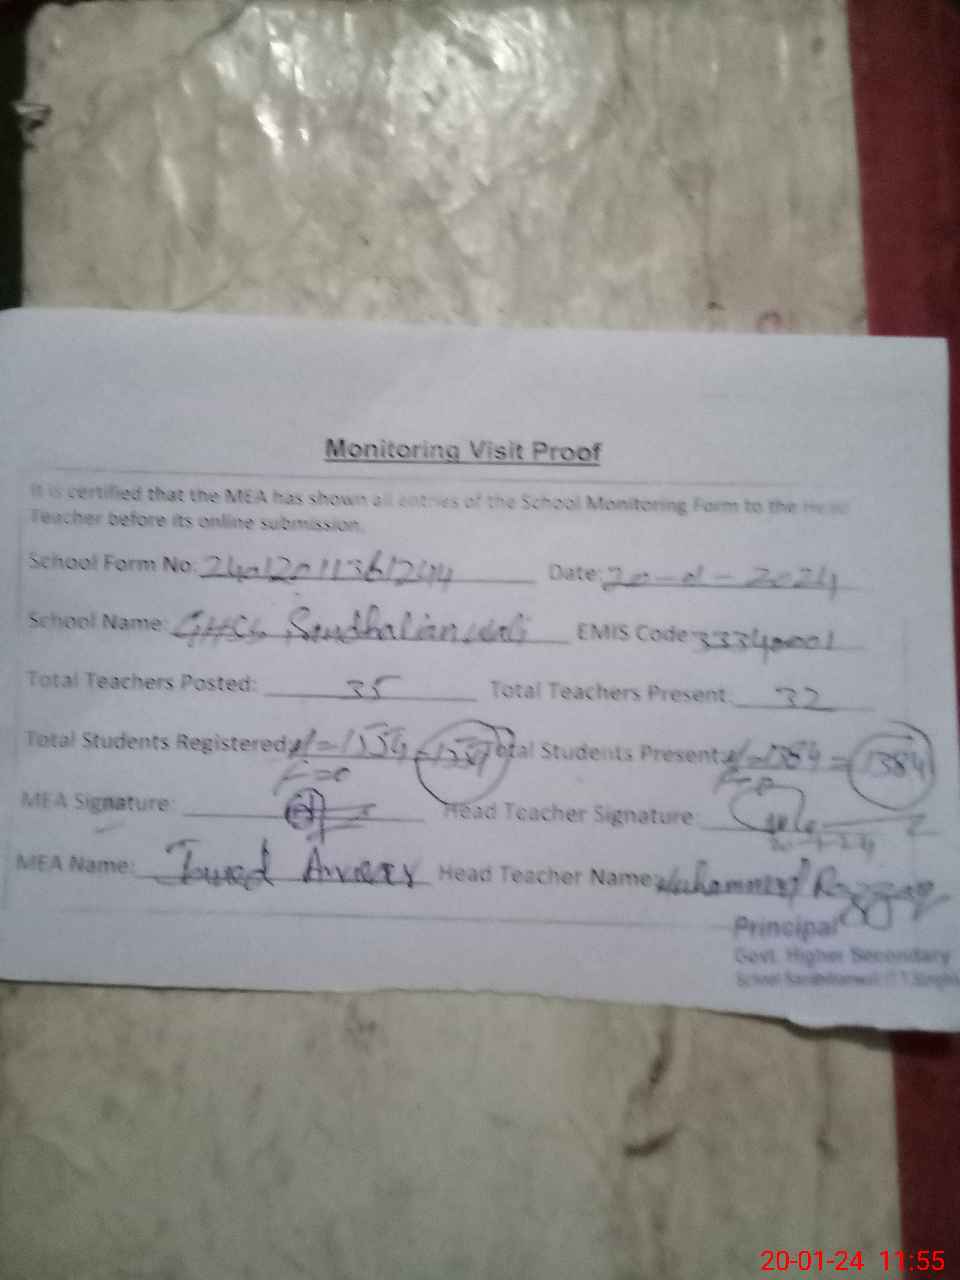 Monitoring Visit Proof
It is certified that the MEA has shown all entries of the School Monitoring Form to the Head
Teacher before its online submission.
School Form No: 24012011361244 Date: 20-01-2024
School Name: GHSS Sandhalianwali EMIS Code 33340001
Total Teachers Posted: 35 Total Teachers Present: 32
Total Students Registered: M=1554 =1554 Total Students Present: M=1384 = 1384
F=0 F=0
MEA Signature: Head Teacher Signature:
MEA Name: Javed Anwar Head Teacher Name: Muhammad Razzaq
Principal
Govt. Higher Secondary
School Sandhilianwali (T.T.Singh)
20-01-24 11:55